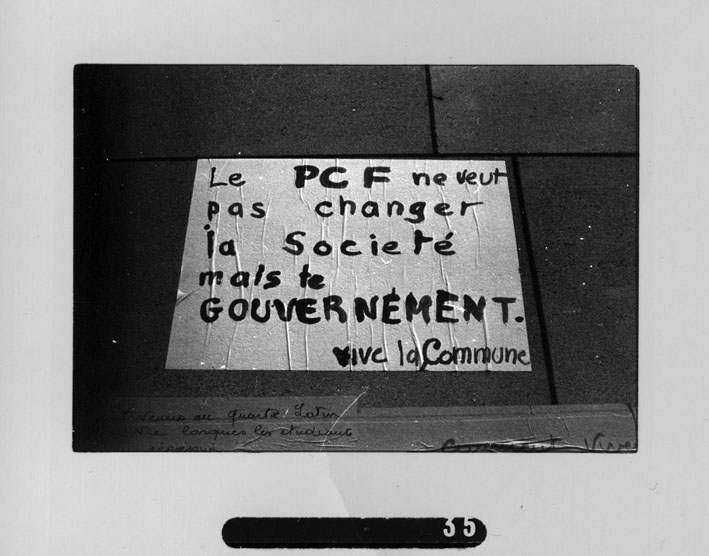 Le PCF ne veut
pas changer
la Societé
mais le
GOUVERNÉMENT.
vive la Commune
venus au quartier Latin
les étudiants
Comment Vivre
35